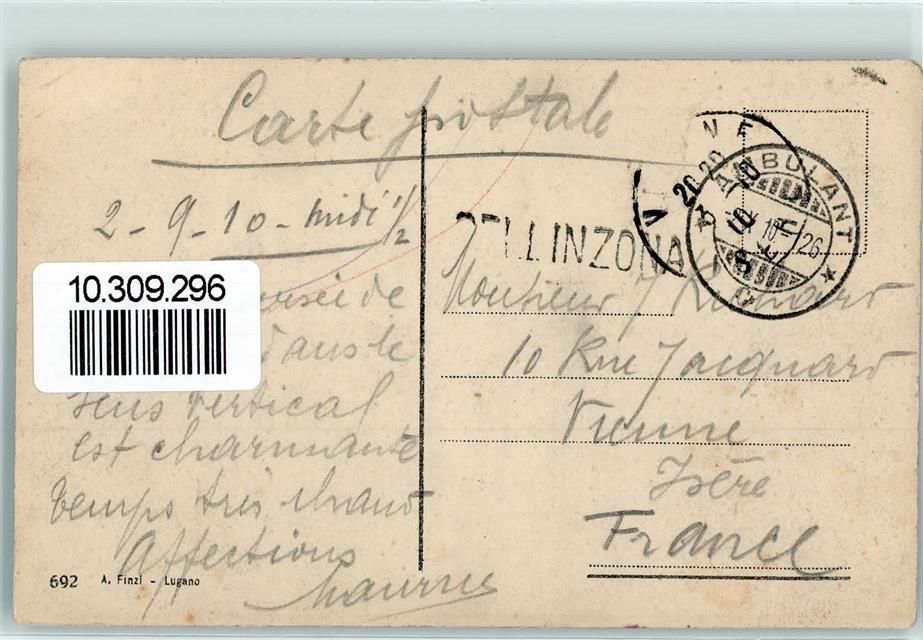 Carte postale
2-9-10-midi 1/2
10.309.296
dans le
sens vertical
est charmante
temps très chaud
Affections
Maurice
692 A. Finzi - Lugano
BELLINZONA
AMBULANT
Monsieur J Richard
10 Rue Jacquard
Vienne
Isère
France